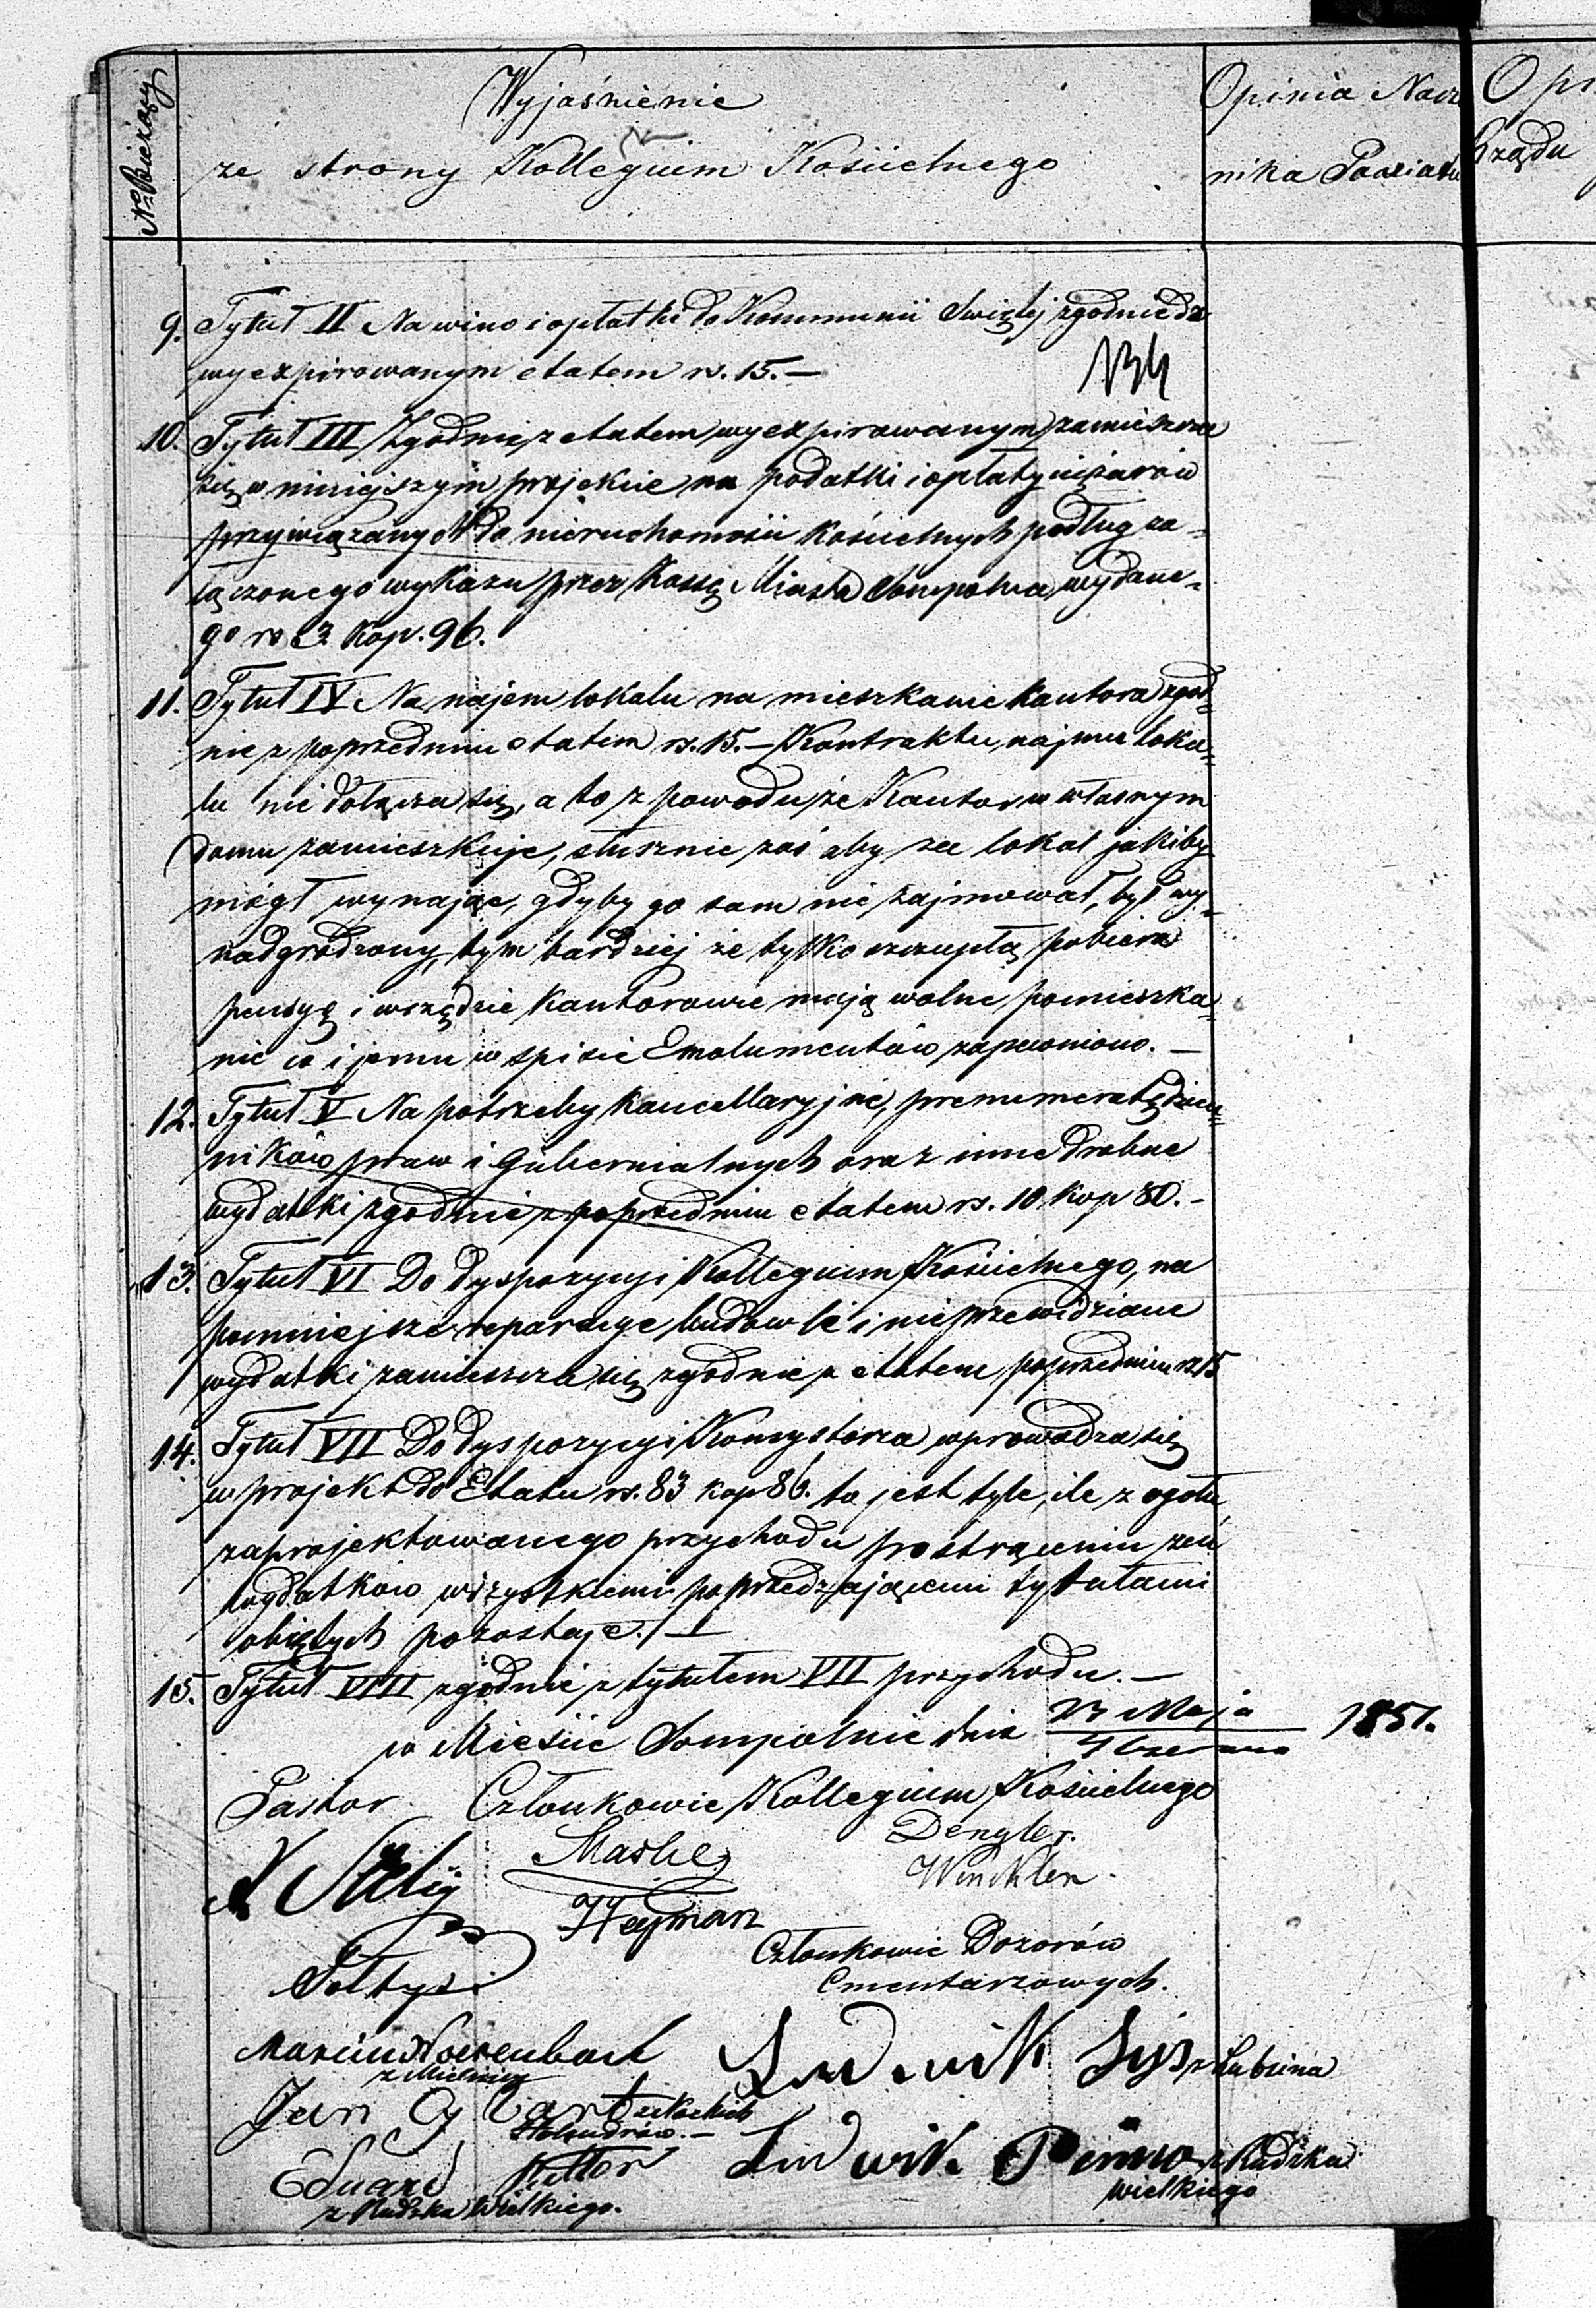 No Bieżący
Wyjaśnienie
ze strony Kollegium Kościelnego
Opinia Nacz
nika Powiatu
Rządu
134
9. Tytuł II Na wino i opłatki do Kommunii Swiętej zgodnie z
wyexpirowanym etatem rs. 15.—
10. Tytuł III Zgodnie z etatem wyexpirowanym zamieszcza
się w niniejszym projekcie na podatki i opłaty ciężarów
przywiązanych do nieruchomości kościelnych podług za-
łączonego wykazu przez Kassę Miasta Sompolna wydane-
go rs 3 kop. 96.
11. Tytuł IV Na najem lokalu na mieszkanie kantora zgod-
nie z poprzednim etatem rs. 15.— Kontraktu najmu loka-
lu nie dołącza się, a to z powodu, że Kantor w własnym
domu zamieszkuje, słusznie zaś aby za lokal jakiby
mógł wynająć, gdyby go sam nie zajmował, był wy-
nadgrodzony, tym bardziej że tylko szczupłą pobiera
pensyę i wszędzie Kantorowie mają wolne pomieszka-
nie co i jemu w spisie Emolumentów zapewniono.—
12. Tytuł V Na potrzeby kancellaryjne, prenumeratę dzien-
ników praw i Gubernialnych oraz inne drobne
wydatki zgodnie z poprzednim etatem rs. 10 kop 80.-
13. Tytuł VI Do dyspozycyi Kollegium Kościelnego, na
pomniejsze reparacye budowle i nieprzewidziane
wydatki zamieszcza się zgodnie z etatem poprzednim rs 15
14. Tytuł VII Do dyspozycyi Konsystorza wprowadza się
w projekt do Etatu rs. 83 kop 86. to jest tyle, ile z ogołu
zaprojektowanego przychodu po strąceniu zeń
wydatków wszystkiemi poprzedzającemi tytułami
objętych pozostaje.—
15. Tytuł VIII zgodnie z tytułem VII przychodu.—
w Mieście Sompolnie dnia 23 Maja / 4 Czerwca 1851.
Pastor Członkowie Kollegium Kościelnego
Dengler.
Winckler.
Heyman
Członkowie Dozorów
Cmentarzowych.
Sołtysi
Marcin
Ludwik z Lubsina
Jan
Holendrów.—
Eduard
z Rudzka Wielkiego.
Ludwik z Rudzka
Wielkiego